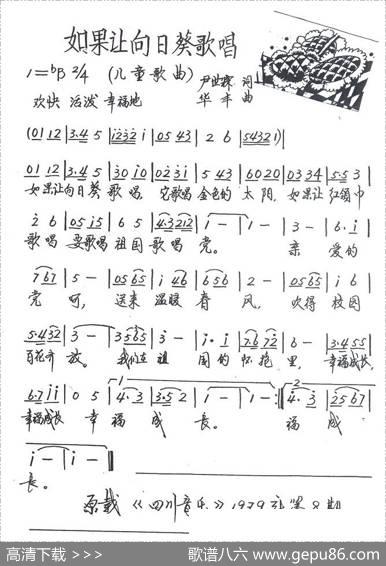 如果让向日葵歌唱
1=♭B 2/4 (儿童歌曲) 词
欢快 活泼 幸福地 华丰 曲
(01 12 | 3·4 5 | i232 i | 05 43 | 2 6 | 5432 1)|
01 12 | 3·4 5 | 30 i0 | 02 3i | 5 43 | 60 20 | 03 34 | 5·5 3 |
如果让向日葵 歌唱, 它歌唱金色的 太阳, 如果让红领巾
2 6 | 05 i5 | 6 5 | 4·3 212 | i - | i - | 3 - | 6·i |
歌唱 要歌唱祖国歌唱 党。 亲 爱的
7 67 | 5 - | 05 65 | i 46 | 6 56 | 2 - | 05 65 | i 6 |
党 呵, 送来 温暖 春 风, 吹得 校园
5·4 32 | 3 - | 3 565 | 3 - | i·i | 76 72 | 6 - | 3·4 55 |
百花齐 放。 我们在 祖 国的 怀抱 里, 幸福成长,
6·7 ii | 0 5 | 4·3 | 3·5 2 | i - | i - :| 4·3 | 2567 |
幸福成长 幸 福 成 长。 福 成
i - | i - ‖
长。
原载《四川音乐》1979
高清下载 >>> 歌谱八六 www.gepu86.com